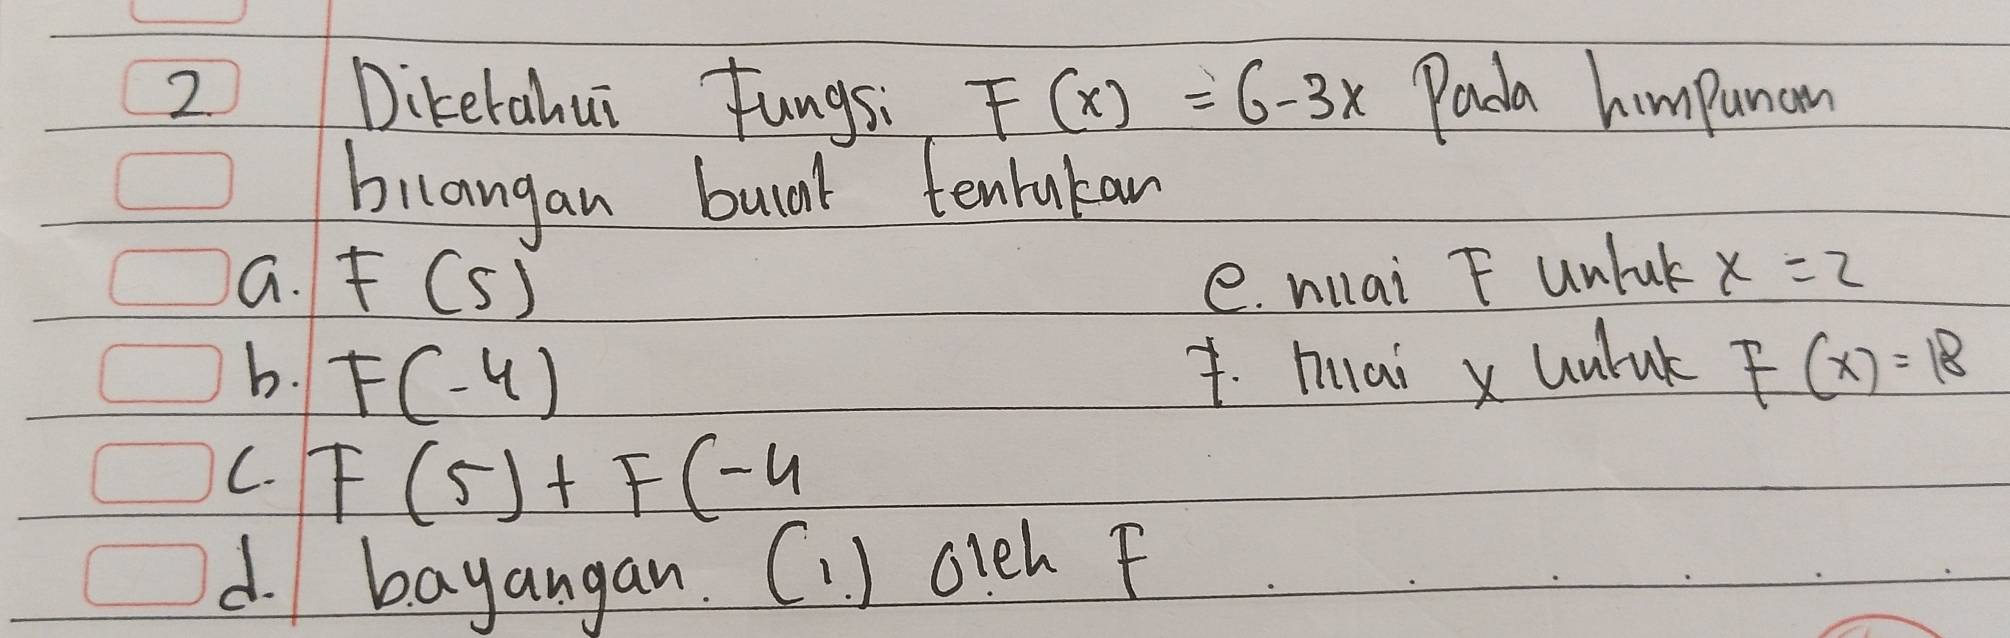 2. Diketahui Fungsi F(x) = 6-3x Pada himpunan
bilangan bulat tentukan
a. F(5)
e. nilai F untuk x = 2
b. F(-4)
f. nilai x untuk F(x) = 18
c. F(5) + F(-4
d. bayangan. (1.) oleh F